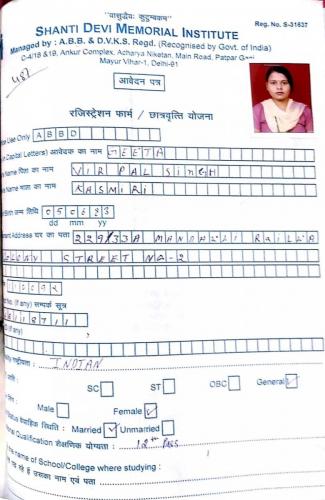 "वसुधैव कुटुम्बकम्"
Reg. No. S-31637
SHANTI DEVI MEMORIAL INSTITUTE
Managed by : A.B.B. & D.V.K.S. Regd. (Recognised by Govt. of India)
C-4/18 &19, Ankur Complex, Acharya Niketan, Main Road, Patpar
Mayur Vihar-1, Delhi-91
आवेदन पत्र
रजिस्ट्रेशन फार्म / छात्रवृत्ति योजना
Use Only ABBD
Capital Letters) आवेदक का नाम GEETA
Name पिता का नाम VIRPAL SINGH
Name माता का नाम KASMIRI
Birth जन्म तिथि 050683
dd mm yy
Address घर का पता 229/33A MANDAWLI RAILLA
COLONY STREET NO-2
No. (if any) सम्पर्क सूत्र
(if any)
राष्ट्रीयता : INDIAN
SC ST OBC General ✓
Male Female ✓
वैवाहिक स्थिति : Married ✓ Unmarried
Qualification शैक्षणिक योग्यता : 12th PASS
name of School/College where studying :
रहे हैं उसका नाम एवं पता